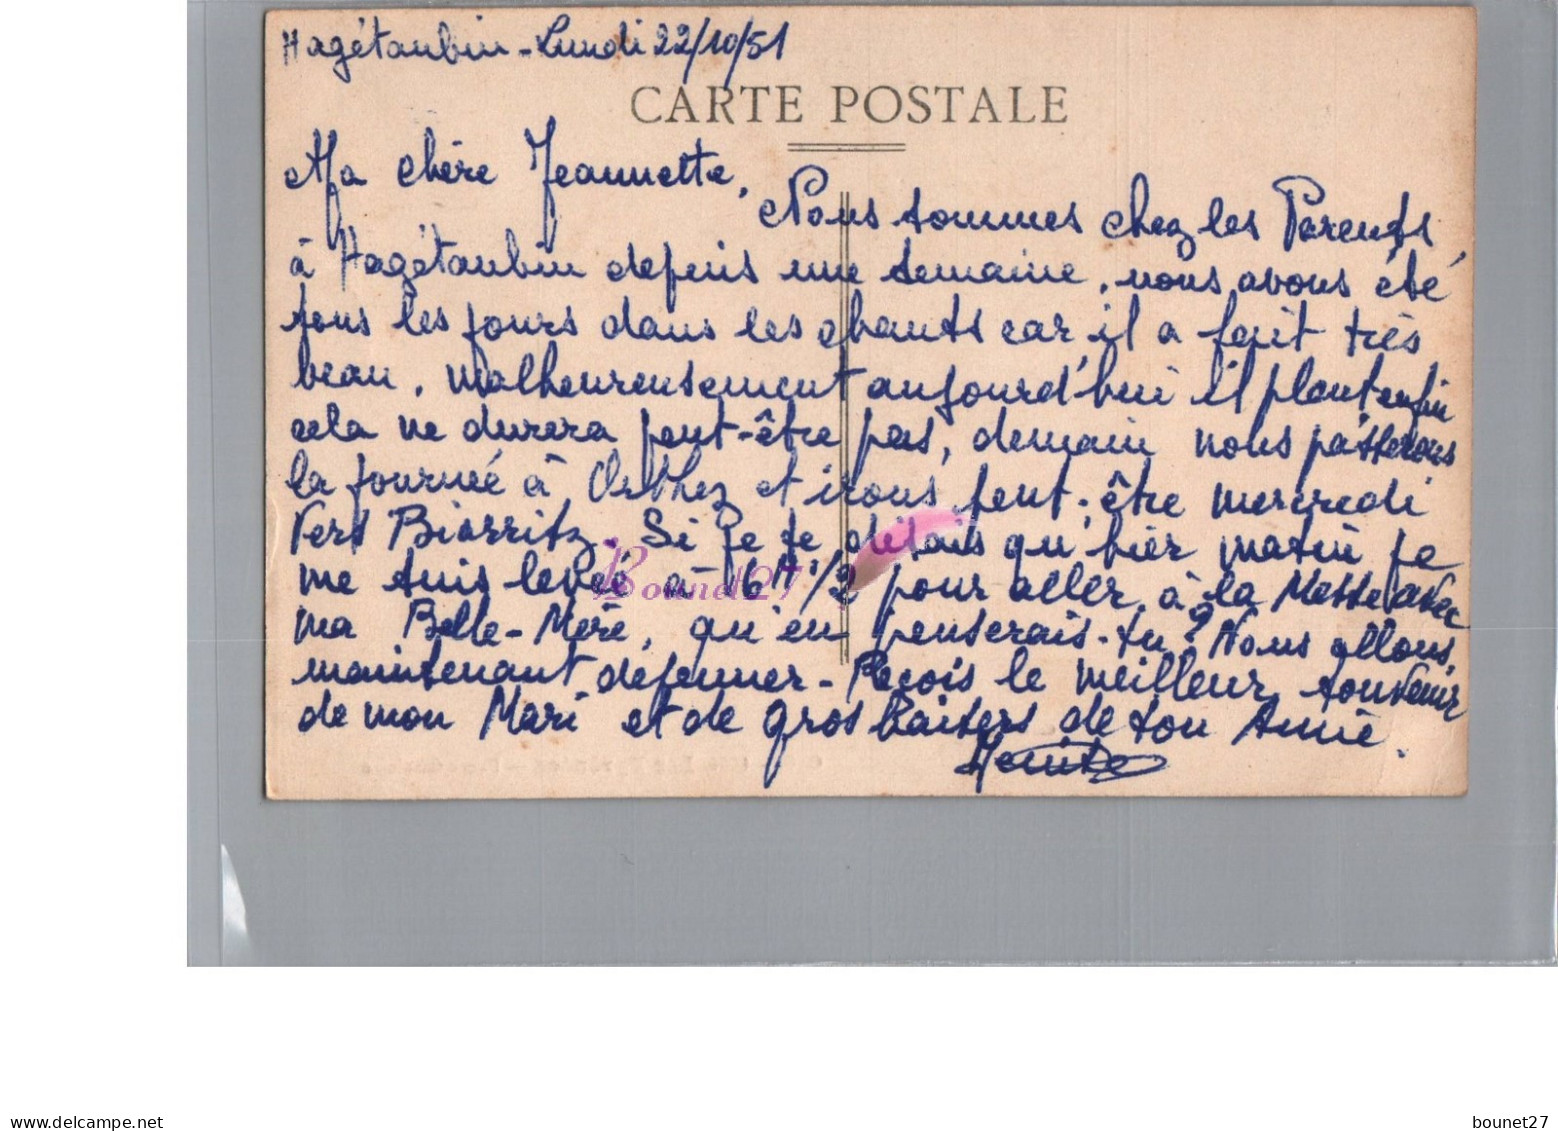 Hagétaubin - Lundi 22/10/51
CARTE POSTALE
Ma chère Jeannette,
Nous sommes chez les Parents
à Hagétaubin depuis une semaine, nous avons été
tous les jours dans les chants car il a fait très
beau, malheureusement aujourd'hui il pleut enfin
cela ne durera peut-être pas, demain nous passerons
la journée à Orthez et irons peut-être mercredi
vers Biarritz. Si je te disais qu'hier matin je
me suis levée à 6h 1/2 pour aller à la Messe avec
ma Belle-Mère, qu'en penserais-tu? Nous allons
maintenant déjeuner - Reçois le meilleur souvenir
de mon Mari et de gros baisers de ton Amie.
Bounet27
www.delcampe.net
bounet27